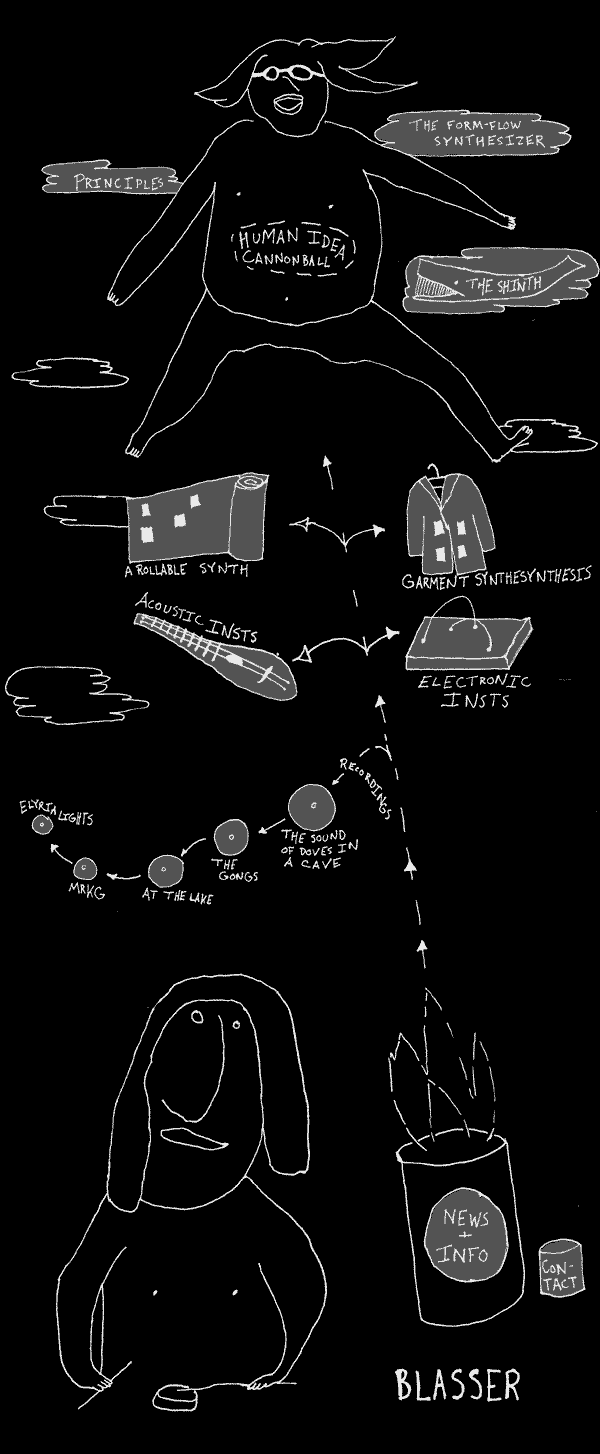 THE FORM-FLOW
SYNTHESIZER
PRINCIPLES
HUMAN IDEA
CANNONBALL
THE SHINTH
A ROLLABLE SYNTH
GARMENT SYNTHESYNTHESIS
ACOUSTIC INSTS
ELECTRONIC
INSTS
RECORDINGS
ELYRIA LIGHTS
THE SOUND
OF DOVES IN
A CAVE
THE
GONGS
MRKG
AT THE LAKE
NEWS
+
INFO
CON-
TACT
BLASSER